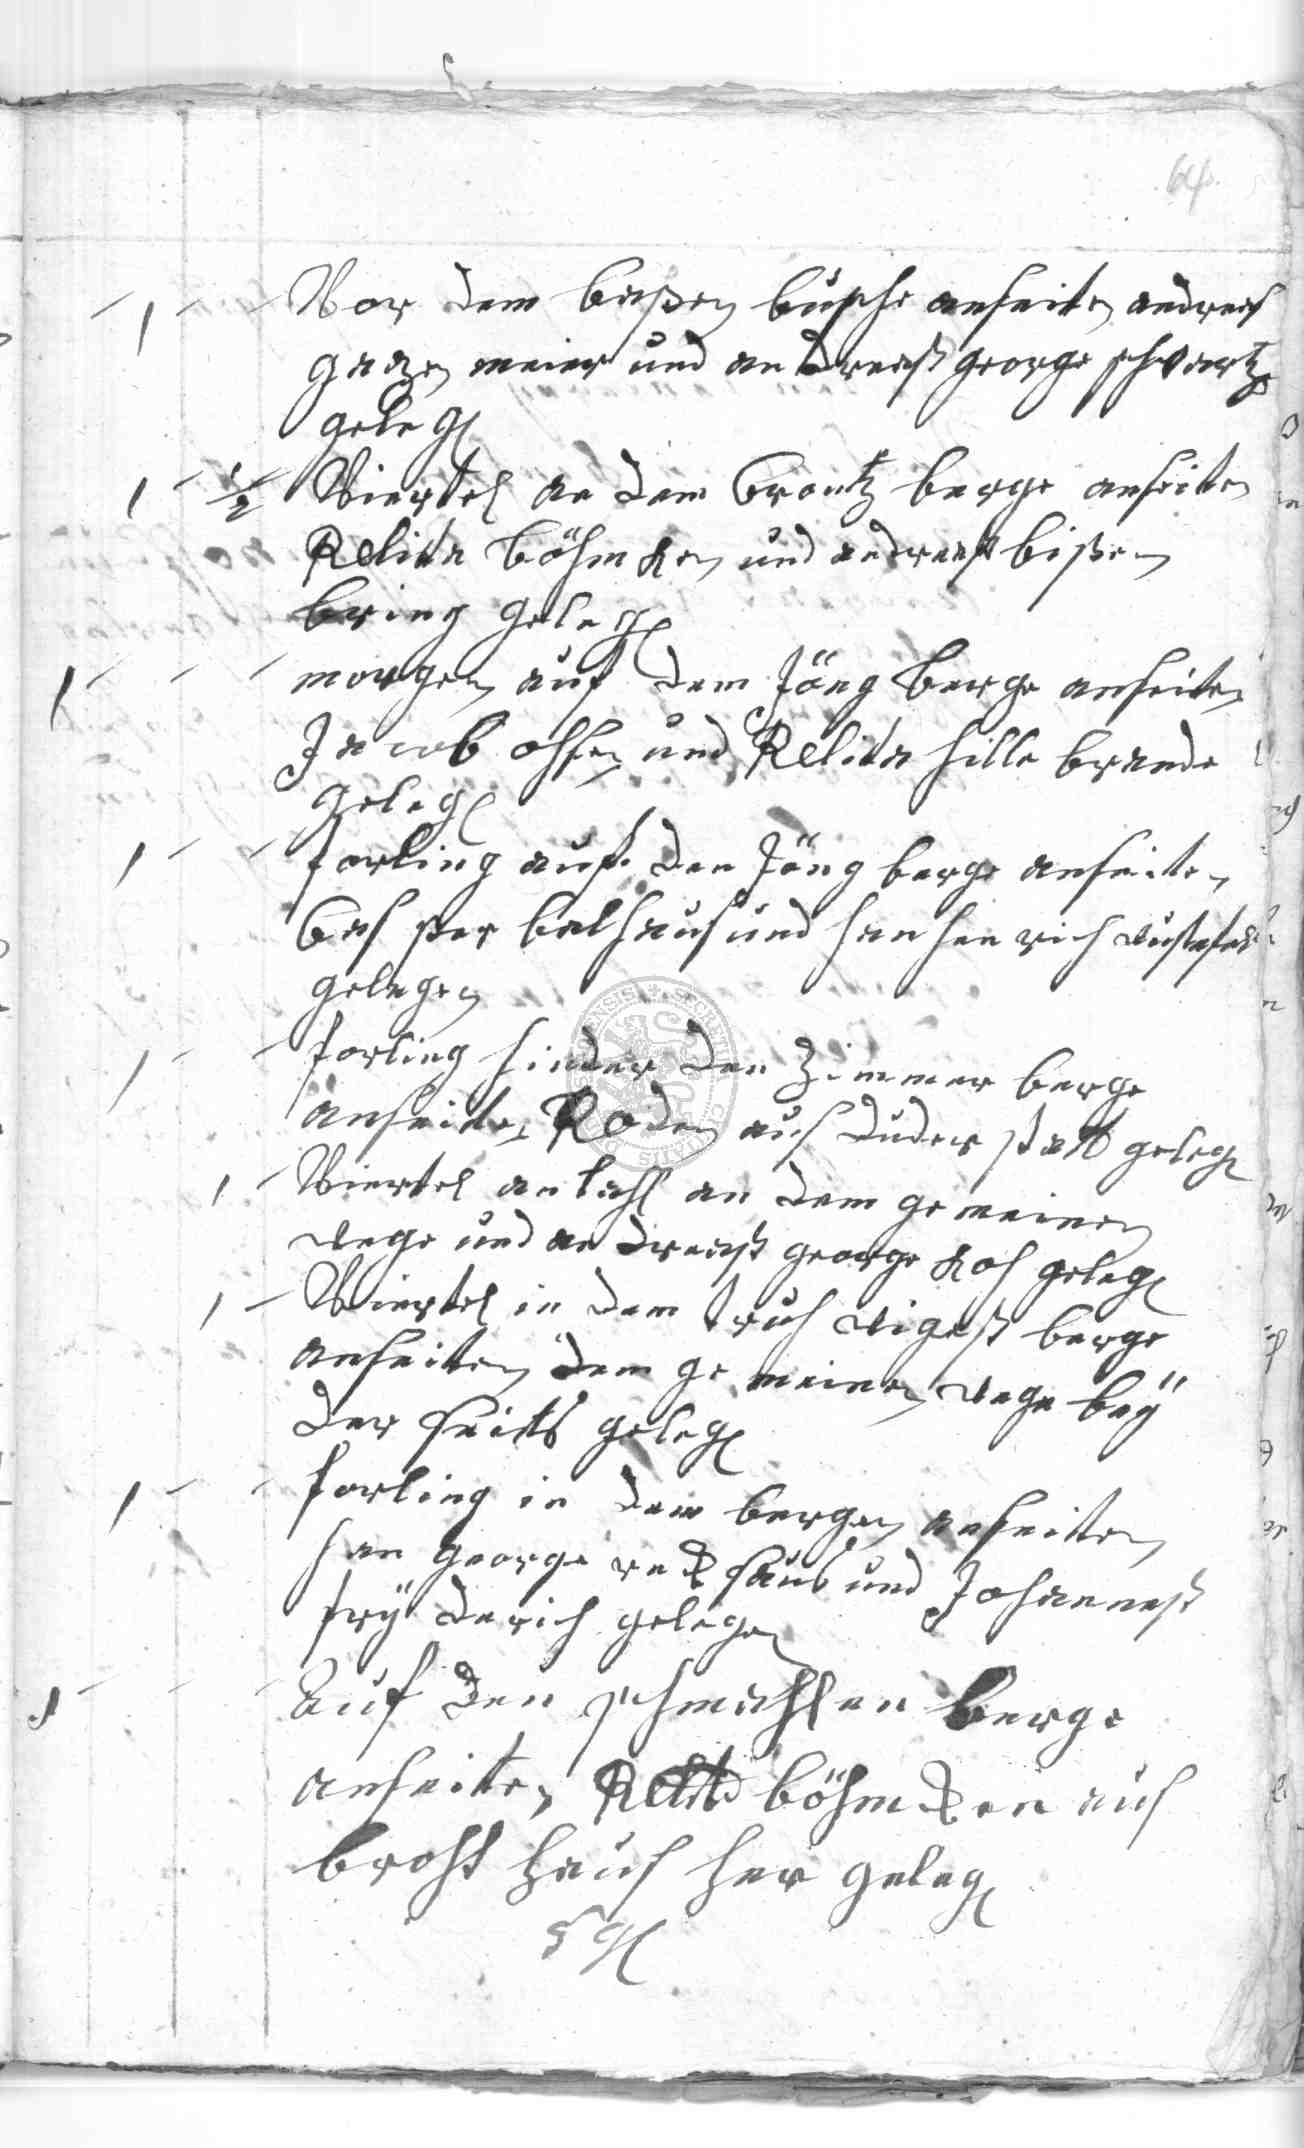 64.
- 1 - - Vor dem baßen busche anseiten andreas
gatzen meier und andreaß george schwartz
geleg
1 - 1/2 Viertel an dem Creutz berge anseiten
Relita böhmken und andreaß bißen
bring geleg
1 - - - morgen auf dem Jöng berge anseiten
Jacob ohsen und Relita hille brande
geleg
1 - - forling auf den Jöng berge anseiten
balhaus und han hen rich
gelegen
1 - - forling hinder den Zimmer berge
anseiten Roden aus duder statt geleg
1 - Viertel an dem gemeinen
wege und an dreaß george koh geleg
1 - Viertel in dem berge
anseiten dem ge meinen wege bey
der seits geleg
1 - - forling in dem bergen anseitten
han george und Johanneß
fry derich gelegen
1 - - - auf den schmahlen berge
anseiten Relita böhmken aus
brohk haus her geleg